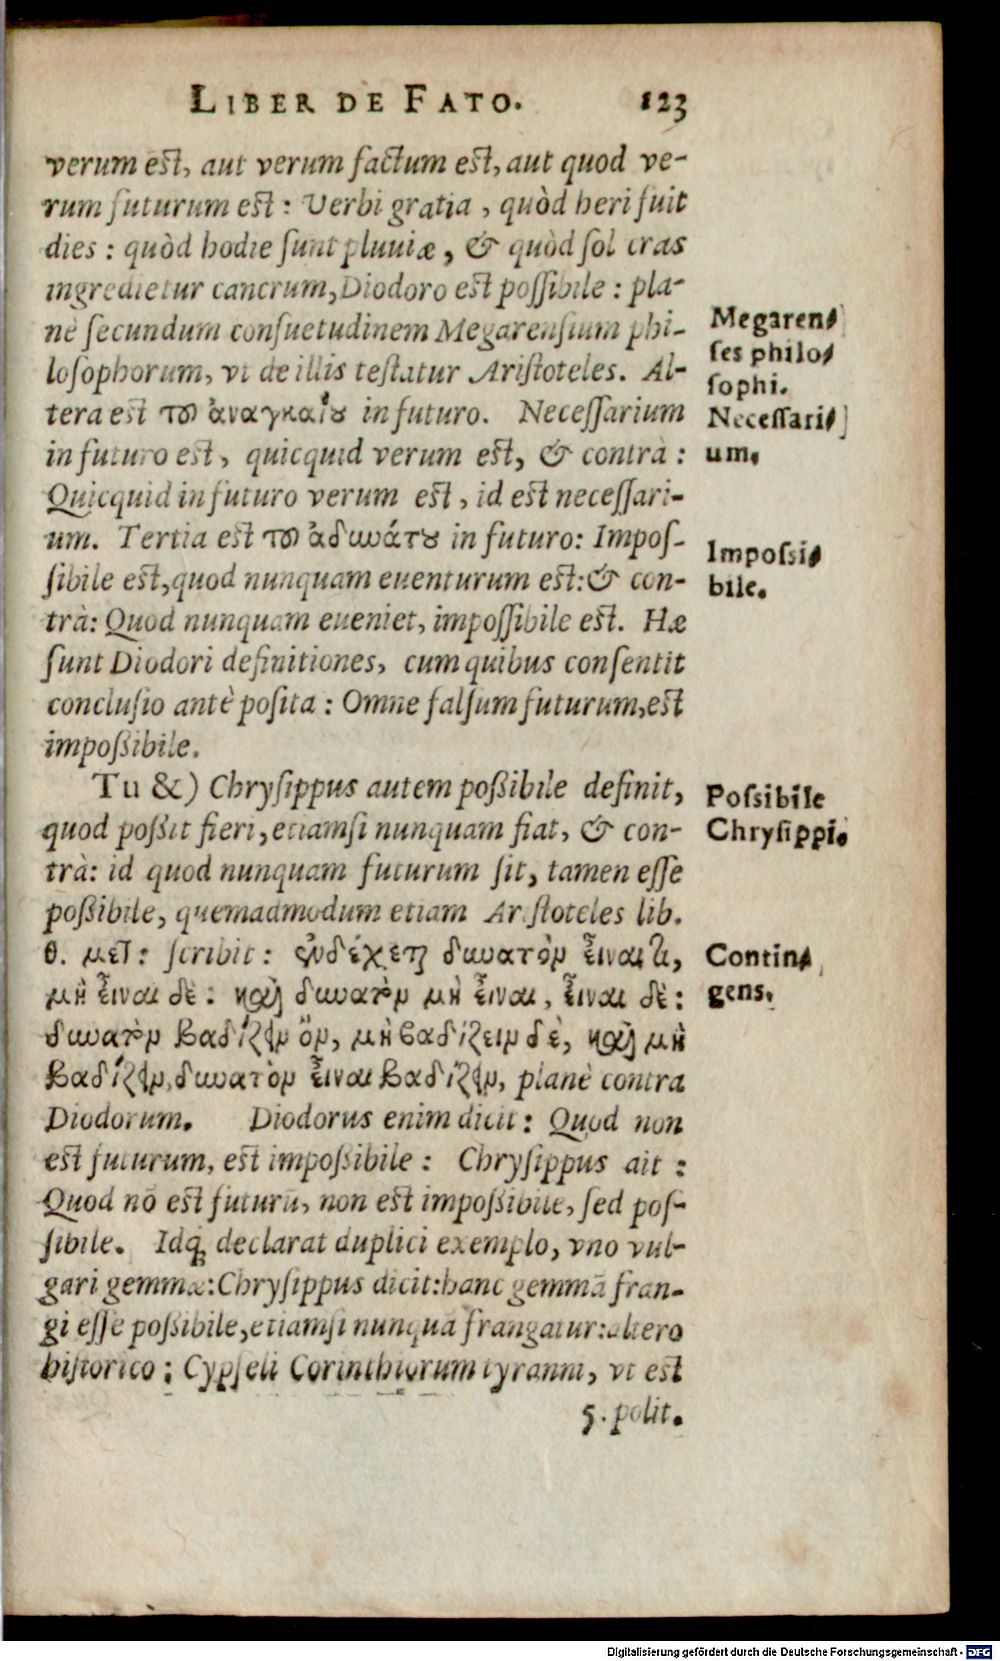 LIBER DE FATO. 123
verum est, aut verum factum est, aut quod ve-
rum futurum est: Verbi gratia, quòd heri fuit
dies: quòd hodie sunt pluuiæ, & quòd sol cras
ingredietur cancrum, Diodoro est possibile: pla-
nè secundum consuetudinem Megarensium phi-
losophorum, vt de illis testatur Aristoteles. Al-
tera est τοῦ ἀναγκαίου in futuro. Necessarium
in futuro est, quicquid verum est, & contrà:
Quicquid in futuro verum est, id est necessari-
um. Tertia est τοῦ ἀδυνάτου in futuro: Impos-
sibile est, quod nunquam euenturum est: & con-
trà: Quod nunquam eueniet, impossibile est. Hæ
sunt Diodori definitiones, cum quibus consentit
conclusio antè posita: Omne falsum futurum, est
impoßibile.
Tu &) Chrysippus autem poßibile definit,
quod poßit fieri, etiamsi nunquam fiat, & con-
trà: id quod nunquam futurum sit, tamen esse
poßibile, quemadmodum etiam Aristoteles lib.
θ. μετ: scribit: ἐνδέχεται δυνατὸν εἶναί τι,
μὴ εἶναι δὲ: καὶ δυνατὸν μὴ εἶναι, εἶναι δὲ:
δυνατὸν βαδίζειν ὂν, μὴ βαδίζειν δὲ, καὶ μὴ
βαδίζειν, δυνατὸν εἶναι βαδίζειν, planè contra
Diodorum. Diodorus enim dicit: Quod non
est futurum, est impoßibile: Chrysippus ait:
Quod nō est futurū, non est impoßibile, sed pos-
sibile. Idq́; declarat duplici exemplo, vno vul-
gari gemmæ: Chrysippus dicit: hanc gemmā fran-
gi esse poßibile, etiamsi nunquā frangatur: altero
historico: Cypseli Corinthiorum tyranni, vt est
5. polit.
Megaren-
ses philo-
sophi.
Necessari-
um.
Impossi-
bile.
Possibile
Chrysippi.
Contin-
gens.
Digitalisierung gefördert durch die Deutsche Forschungsgemeinschaft - DFG